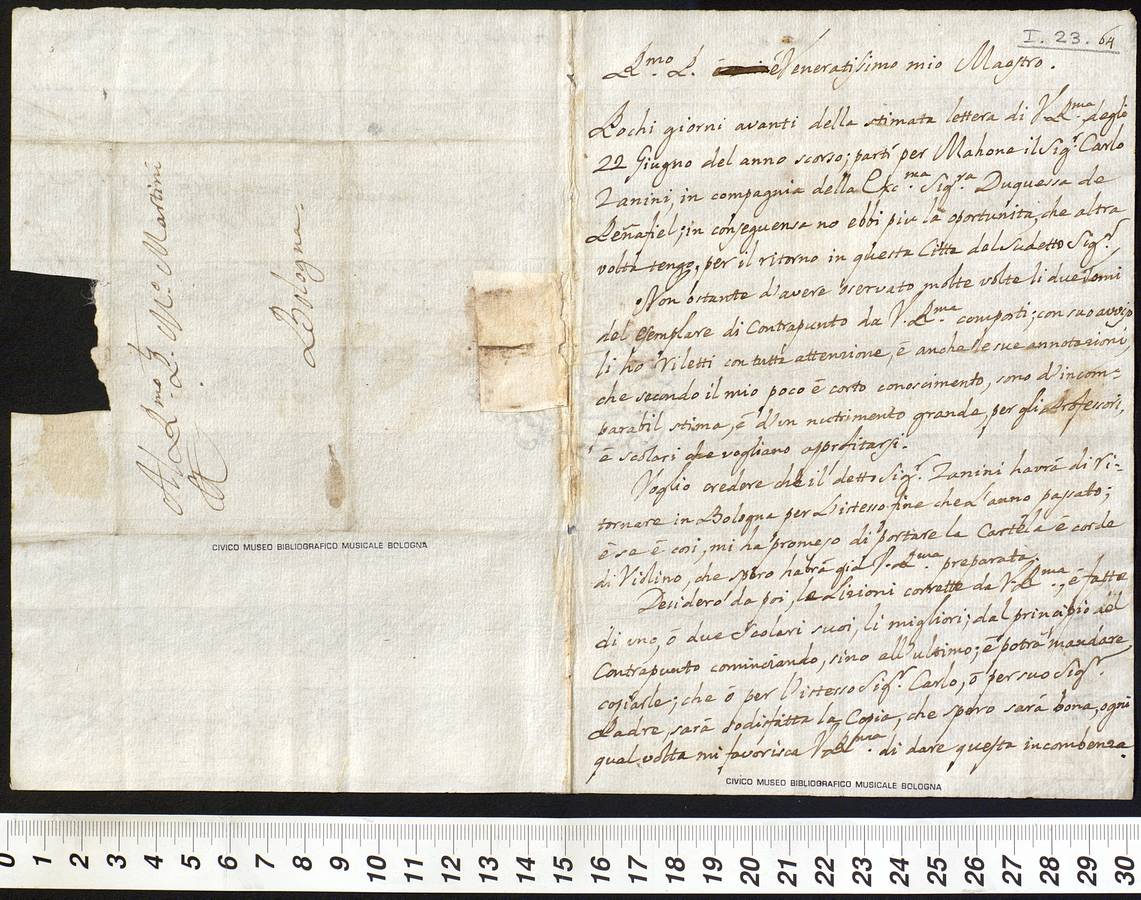 Al Rmo P. Mo Martini
Bologna.
CIVICO MUSEO BIBLIOGRAFICO MUSICALE BOLOGNA
I. 23. 64
Rmo P. è Veneratisimo mio Maestro.
Pochi giorni avanti della stimata lettera di V. Rma degli
22 Giugno del anno scorso; partì per Mahone il Sigr. Carlo
Zanini, in compagnia della Excma Sigra Duquessa de
Peñafiel; in conseguensa no ebbi piu la oportunità, che altra
volta tengo, per il ritorno in questa Citta del Sudetto Sigr.
Non ostante d'avere oservato molte volte li due Tomi
del esemplare di Contrapunto da V. Rma composti; con suo aviso
li ho riletti con tutta attenzione, è anche le sue annotazioni,
che secondo il mio poco è corto conoscimento, sono d'incom=
parabil stima, è d'un nutrimento grande, per gli Professori,
è scolari che vogliano approfitarsi.
Voglio credere che il detto Sigr. Zanini havrà di ri=
tornare in Bologna per l'istesso fine che l'anno passato;
è se è cosi, mi ha promeso di portare la Cartela è corde
di Violino, che spero habrà già V. Rma preparata.
Desidero da poi, le Lizioni corrette da V. Rma, è fatte
di uno, ò due Scolari suoi, li migliori; dal principio del
Contrapunto cominciando, sino all'ultimo; è potrà mandare
copiarle; che ò per l'istesso Sigr. Carlo, ò per suo Sigr.
Padre, sarà sodisfatta la Copia, che spero sarà bona, ogni
qual volta mi favorisca V. Rma di dare questa incombenza.
CIVICO MUSEO BIBLIOGRAFICO MUSICALE BOLOGNA
0 1 2 3 4 5 6 7 8 9 10 11 12 13 14 15 16 17 18 19 20 21 22 23 24 25 26 27 28 29 30